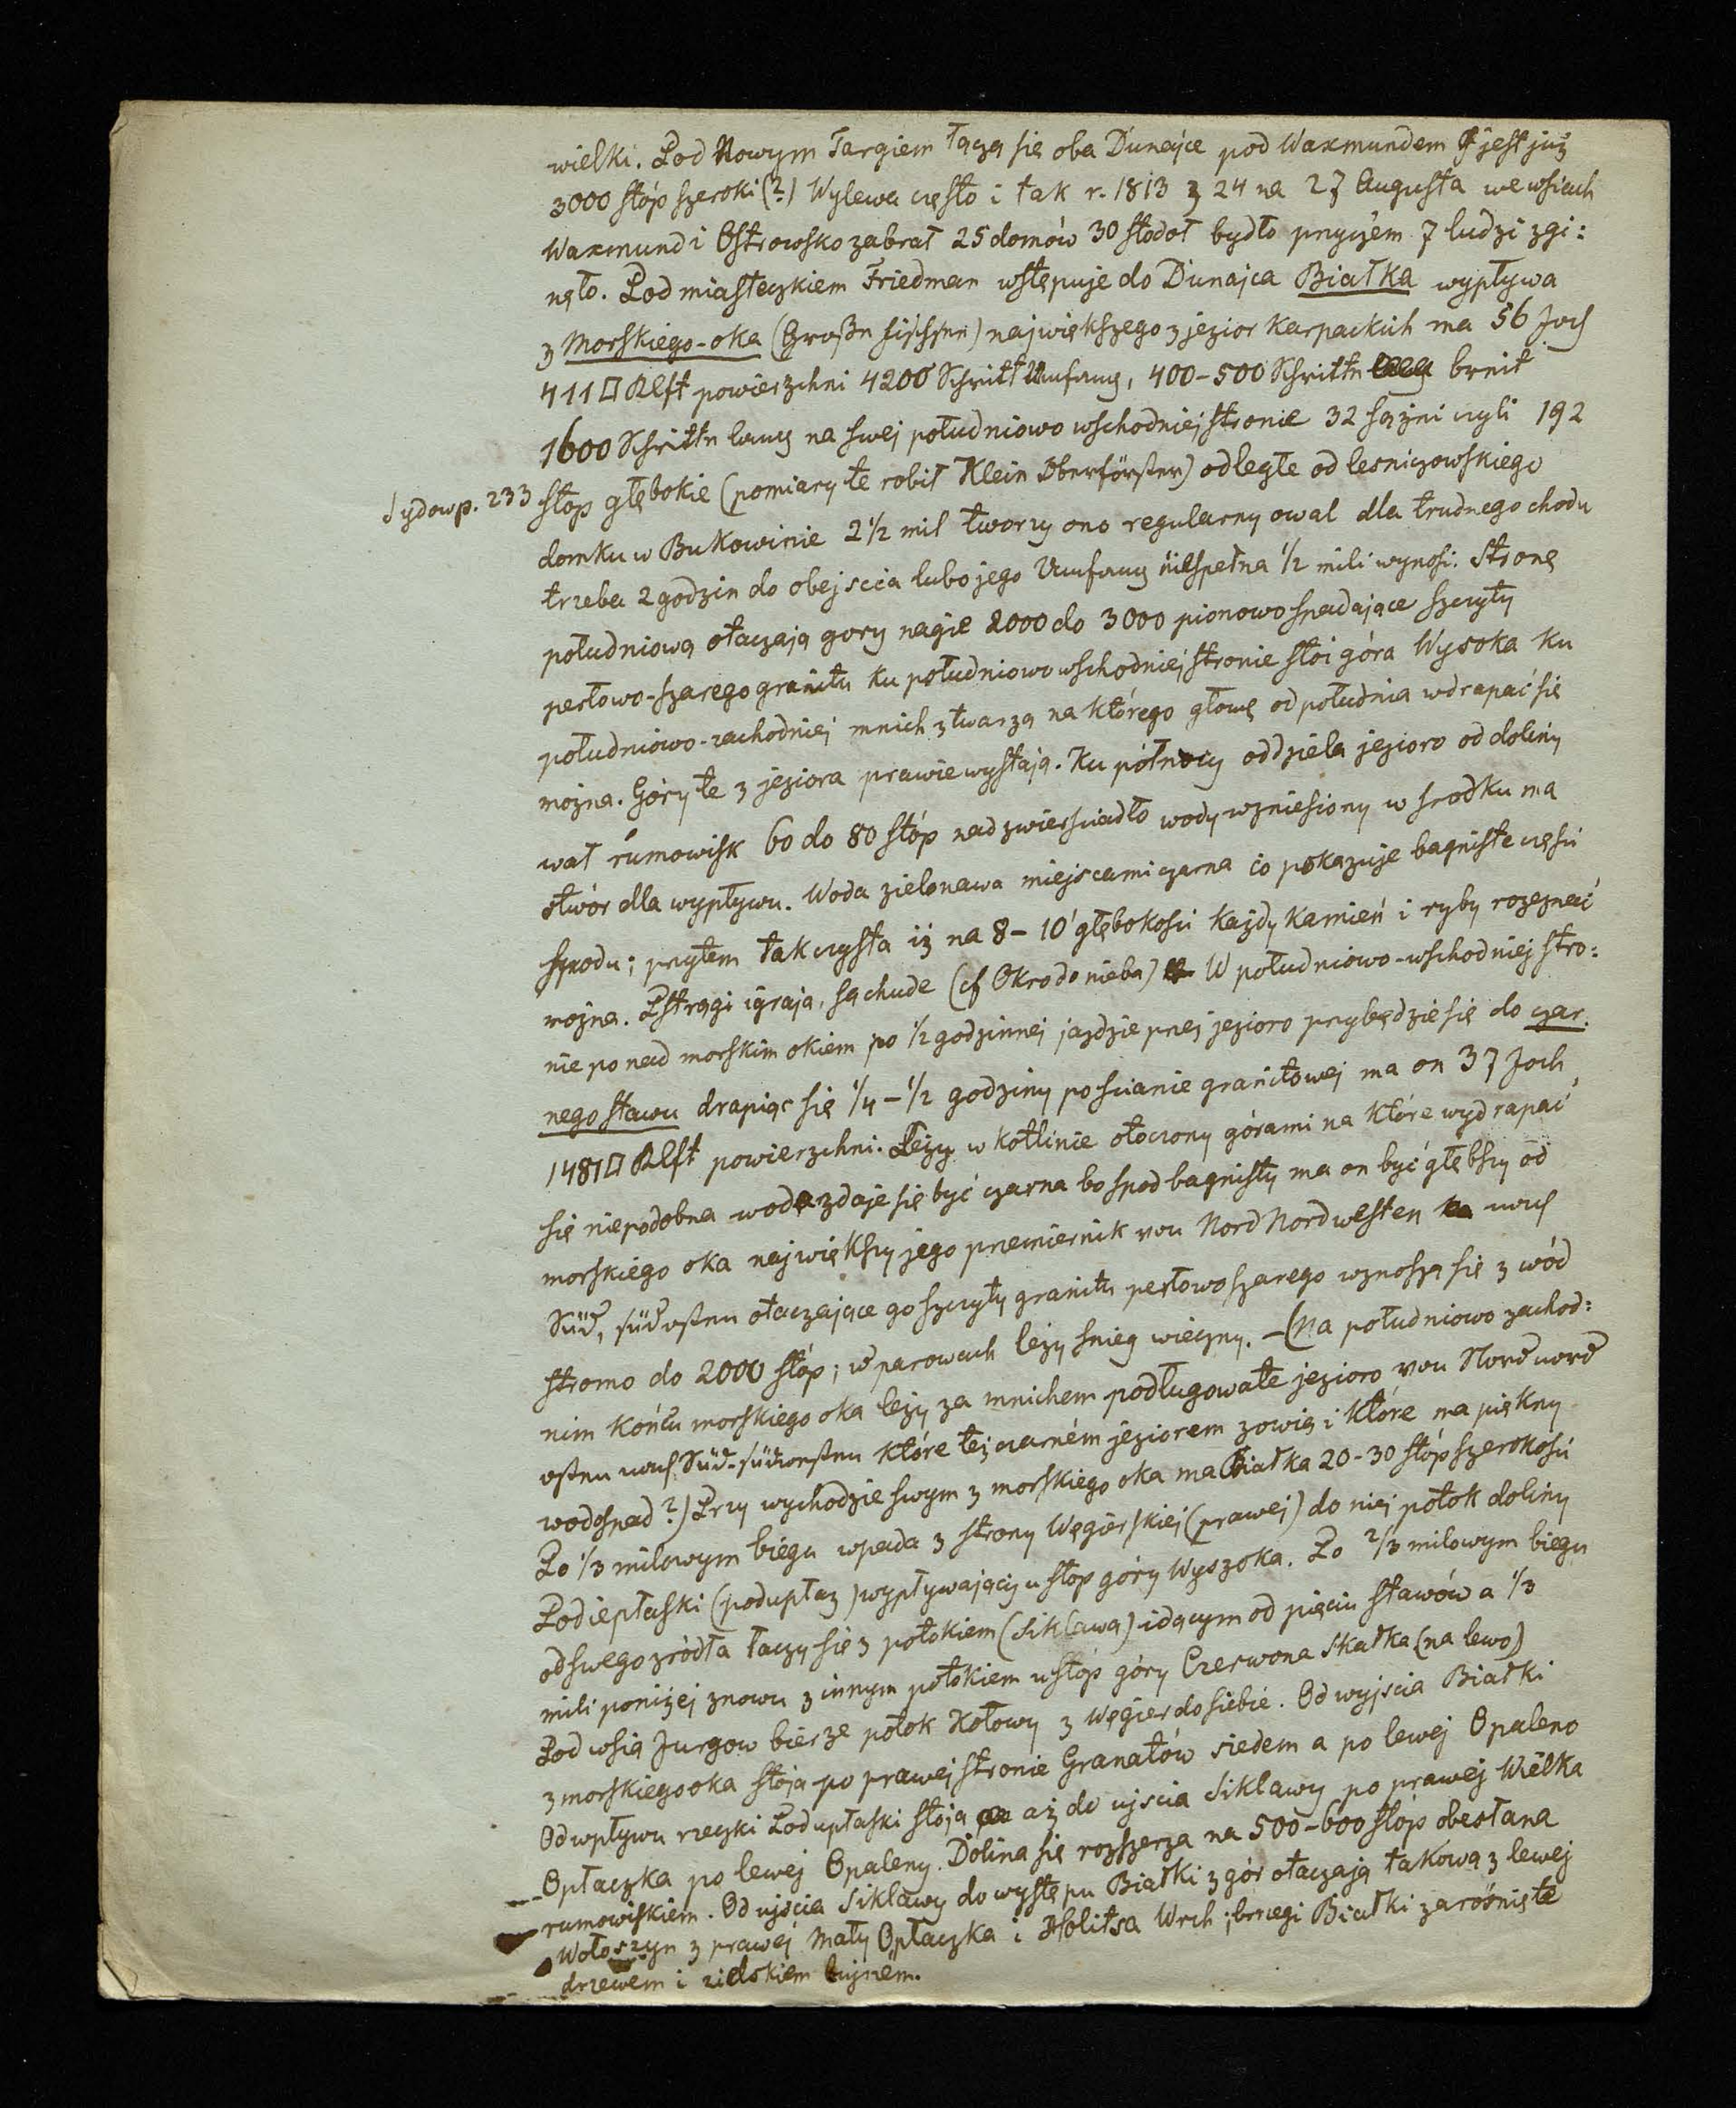 wielki. Pod Nowym Targiem łączą się oba Dunajce pod Waxmundem jest już
3000 stóp szeroki (?) Wylewa często i tak r. 1813 z 24 na 27 Augusta we wsiach
Waxmund i Ostrowsko zabrał 25 domów 30 stodoł bydło przyczém 7 ludzi zgi:
nęło. Pod miasteczkiem Friedman wstępuje do Dunajca Białka wypływa
z Morskiego-oka (Große Fischsee) największego z jezior Karpackich ma 56 Joch
411 □ Klft powierzchni 4200 Schritt Umfang, 400-500 Schritte breit
1600 Schritte lang na swej południowo wschodniej stronie 32 sążni czyli 192
Sydow p. 233 stop głębokie (pomiary te robił Klein Oberförster) odległe od lesniczowskiego
domku w Bukowinie 2 1/2 mil tworzy ono regularny owal dla trudnego chodu
trzeba 2 godzin do obejscia lubo jego Umfang niespełna 1/2 mili wynosi. Stronę
południową otaczają gory nagie 2000 do 3000 pionowo spadające szczyty
perłowo-szarego granitu ku południowo wschodniej stronie stoi góra Wysoka ku
południowo-zachodniej mnich z twarzą na którego głowę od południa wdrapać się
można. Góry te z jeziora prawie wystają. Ku północy oddziela jezioro od doliny
wał rumowisk 60 do 80 stóp nad zwierściadło wody wzniesiony w srodku ma
otwór dla wypływu. Woda zielonawa miejscami czarna co pokazuje bagniste części
spodu; przytem tak czysta iż na 8-10' głębokości każdy kamień i ryby rozeznać
można. Pstrągi igrają, są chude (cf Okro do nieba) W południowo-wschodniej stro:
nie ponad morskim okiem po 1/2 godzinnej jaździe przez jezioro przybędzie się do czar.
nego stawu drapiąc się 1/4-1/2 godziny po scianie granitowej ma on 37 Joch
1481 □ Klft powierzchni. Leży w kotlinie otoczony górami na które wydrapać
się niepodobna woda zdaje się być czarna bo spod bagnisty ma on być głębszy od
morskiego oka największy jego przemiernik von Nord Nordwesten nach
Süd, südosten otaczające go szczyty granitu perłowo szarego wznoszą się z wód
stromo do 2000 stóp; w parowach leży snieg wieczny. - (Na południowo zachod:
nim końcu morskiego oka leży za mnichem podługowate jezioro von Nordnord
osten nach Süd-südwesten które też czarném jeziorem zowią i które ma piękny
wodospad?) Przy wychodzie swym z morskiego oka ma Białka 20-30 stóp szerokości
Po 1/3 milowym biegu wpada z strony Węgierskiej (prawej) do niej potok doliny
Podiepłaski (podupłaz) wypływający u stóp góry Wyszoka. Po 2/3 milowym biegu
od swego zródła łaczy się z potokiem (Siklawa) idącym od pięciu stawów a 1/3
mili poniżej znowu z innym potokiem u stóp góry Czerwona Skałka (na lewo)
Pod wsią Jurgow bierze potok Kołowy z Węgier do siebie. Od wyjscia Białki
z morskiego oka stoją po prawej stronie Granatów siedem a po lewej Opaleno
Od wpływu rzeczki Podupłaski stoją aż do ujscia Siklawy po prawej Wielka
Opłaczka po lewej Opaleny. Dolina się rozszerza na 500-600 stóp obesłana
rumowiskiem. Od ujścia Siklawy do występu Białki z gór otaczają takową z lewej
Wołoszyn z prawej Mały Opłaczka i Holitsa Wrch; brzegi Białki zarośnięte
drzewem i zielskiem bujném.